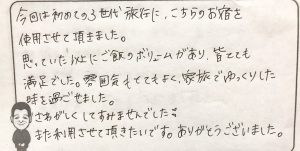 今回は初めての3世代旅行に、こちらのお宿を
使用させて頂きました。
思っていた以上にご飯のボリュームがあり、皆とても
満足でした。雰囲気もとてもよく、家族でゆっくりした
時を過ごせました。
さわがしくしてすみませんでした
また利用させて頂きたいです。ありがとうございました。